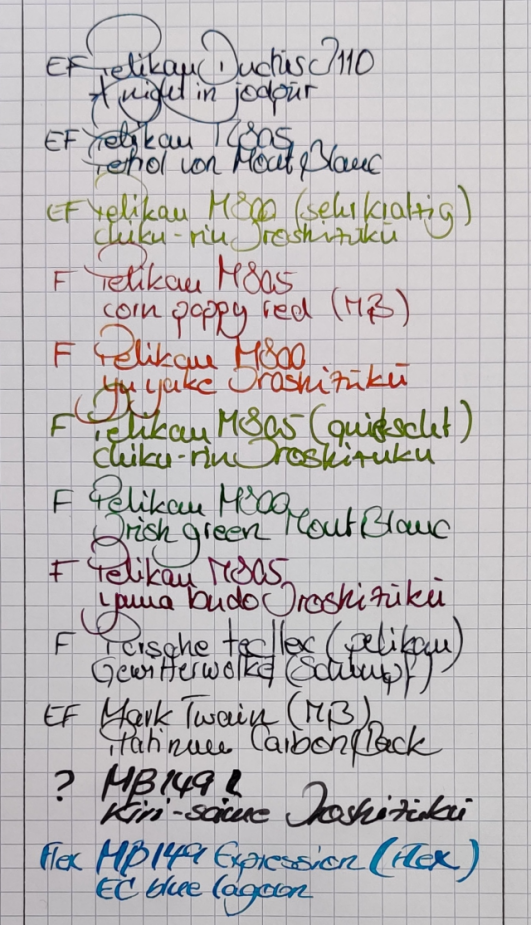 EF Pelikan Ductus 3110
A night in jodpur
EF Pelikan M805
Petrol von Mont Blanc
EF Pelikan M800 (sehr kratzig)
chiku-rin Iroshizuku
F Pelikan M805
corn poppy red (MB)
F Pelikan M800
yu yake Iroshizuku
F Pelikan M805 (quietscht)
chiku-rin Iroshizuku
F Pelikan M800
Irish green Mont Blanc
F Pelikan M805
yama budo Iroshizuku
F Porsche tecflex (pelikan)
Gewitterwolke (Schimpf)
EF Mark Twain (MB)
Platinum Carbon Black
? MB 149
Kiri-same Iroshizuku
flex MB 149 Expression (flex)
EC blue lagoon